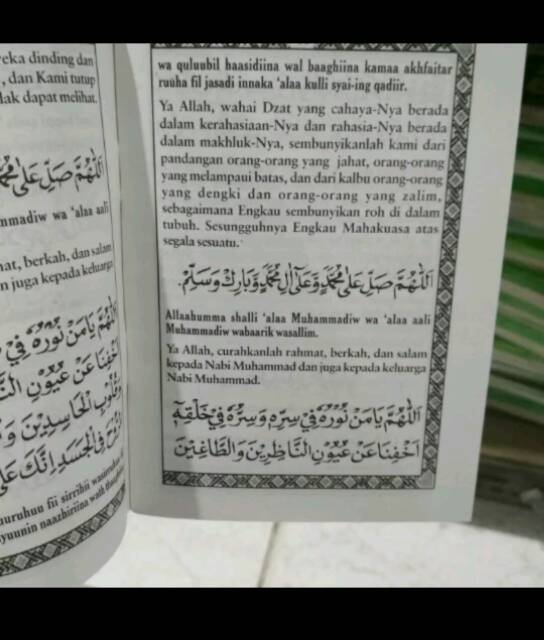 reka dinding dan
, dan Kami tutup
dak dapat melihat.
اَللّٰهُمَّ صَلِّ عَلٰى
mmadiw wa ‘alaa aali
mat, berkah, dan salam
n juga kepada keluarga
اَللّٰهُمَّ يَامَنْ نُوْرُهٗ فِيْ
اَخْفِنَا عَنْ عُيُوْنِ
وَقُلُوْبِ الْحَاسِدِيْنَ
فِى الْجَسَدِ اِنَّكَ
uuruhuu fii sirrihii
yuunin naazhiriina wath
wa quluubil haasidiina wal baaghiina kamaa akhfaitar
ruuha fil jasadi innaka ‘alaa kulli syai-ing qadiir.
Ya Allah, wahai Dzat yang cahaya-Nya berada
dalam kerahasiaan-Nya dan rahasia-Nya berada
dalam makhluk-Nya, sembunyikanlah kami dari
pandangan orang-orang yang jahat, orang-orang
yang melampaui batas, dan dari kalbu orang-orang
yang dengki dan orang-orang yang zalim,
sebagaimana Engkau sembunyikan roh di dalam
tubuh. Sesungguhnya Engkau Mahakuasa atas
segala sesuatu.
اَللّٰهُمَّ صَلِّ عَلٰى مُحَمَّدٍ وَّعَلٰى اٰلِ مُحَمَّدٍ وَّبَارِكْ وَسَلِّمْ.
Allaahumma shalli ‘alaa Muhammadiw wa ‘alaa aali
Muhammadiw wabaarik wasallim.
Ya Allah, curahkanlah rahmat, berkah, dan salam
kepada Nabi Muhammad dan juga kepada keluarga
Nabi Muhammad.
اَللّٰهُمَّ يَامَنْ نُوْرُهٗ فِيْ سِرِّهٖ وَسِرُّهٗ فِيْ خَلْقِهٖ
اَخْفِنَا عَنْ عُيُوْنِ النَّاظِرِيْنَ وَالطَّاغِيْنَ